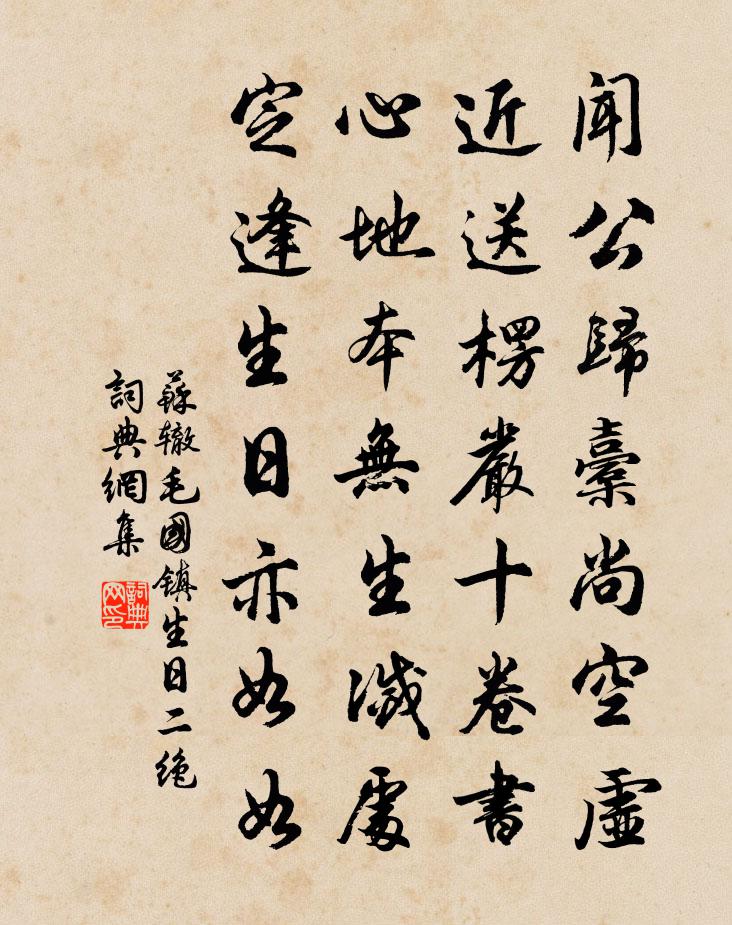 聞公歸橐尚空虛
近送楞嚴十卷書
心地本無生滅處
定逢生日亦如如
蘇辙毛國镇生日二绝
詞典網集
詞典网印